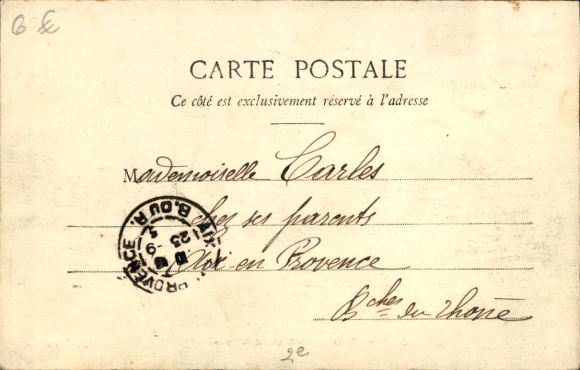 CARTE POSTALE
Ce côté est exclusivement réservé à l'adresse
Mademoiselle Carles
chez ses parents
Aix en Provence
Bches du Rhône
AIX PROVENCE B. DU R.
23
2e